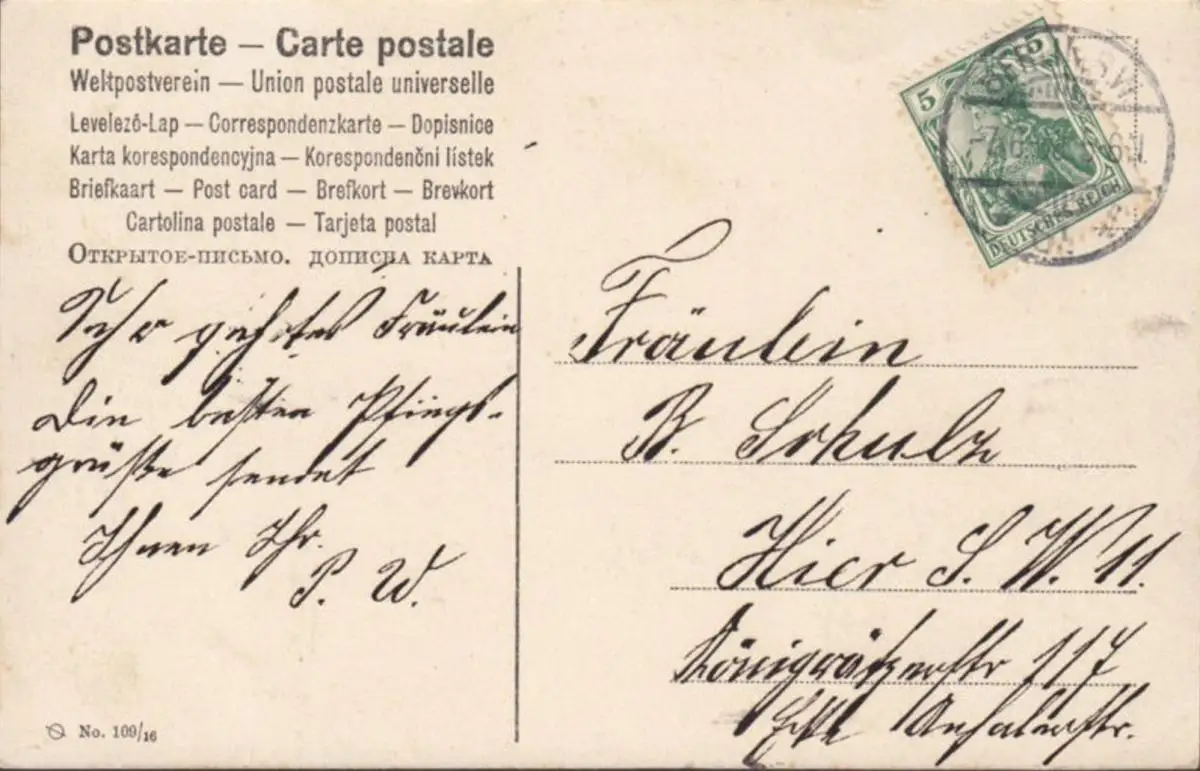 Postkarte — Carte postale
Weltpostverein — Union postale universelle
Levelező-Lap — Correspondenzkarte — Dopisnice
Karta korespondencyjna — Korespondenční lístek
Briefkaart — Post card — Brefkort — Brevkort
Cartolina postale — Tarjeta postal
Открытое-письмо. дописна карта
5 5
BERLIN S.W.
DEUTSCHES REICH
Sehr geehrtes Fräulein
Die besten Pfingst-
grüße sendet
Ihnen Ihr.
P. W.
Fräulein
B. Schulz
Hier S. W. 11.
Königgrätzerstr 117
Ecke Anhalterstr.
No. 109/16